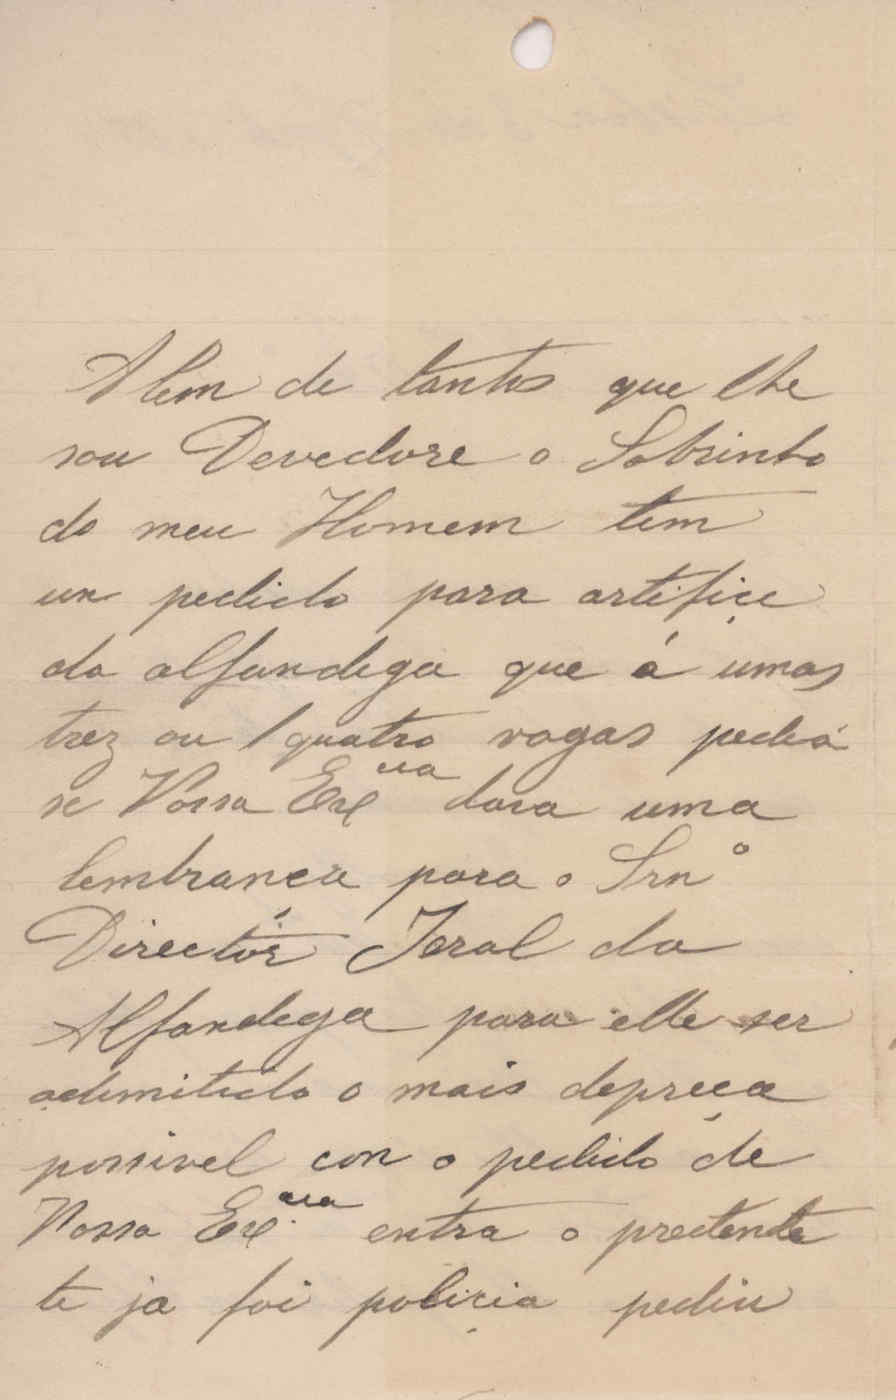 Alem de tantos que lhe
sou Devedore o Sobrinho
do meu Homem tem
un pedido para artifiçe
da alfandega que á umas
trez ou quatro vagas pedia
se Vossa Exᶜⁱᵃ dava uma
lembranca para o Srnº
Directór Jeral da
Alfandega para elle ser
ademitido o mais depreça
possivel con o pedido de
Vossa Exᶜⁱᵃ entra o pretenden
te ja foi policia pediu